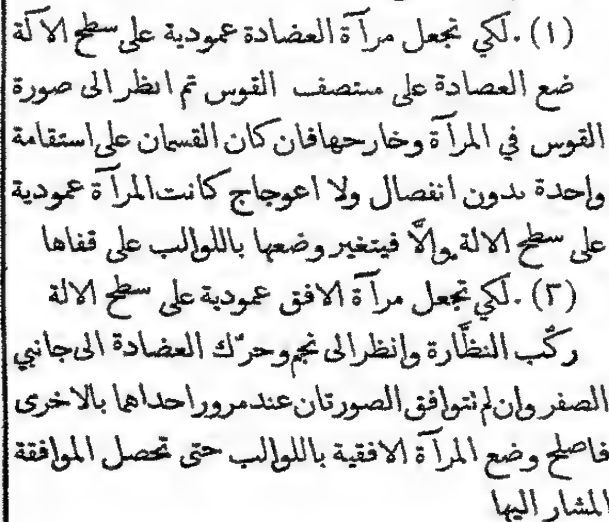 (١) . لكي تجعل مرآة العضادة عمودية على سطح الآلة
ضع العصادة على منتصف القوس ثم انظر الى صورة
القوس في المرآة وخارجها فان كان القسمان على استقامة
واحدة بدون انفصال ولا اعوجاج كانت المرآة عمودية
على سطح الالة والّا فيتغير وضعها باللوالب على قفاها
(٢) . لكي تجعل مرآة الافق عمودية على سطح الالة
ركّب النظّارة وانظر الى نجم وحرّك العضادة الى جانبي
الصفر وان لم تتوافق الصورتان عند مرور احداها بالاخرى
فاصلح وضع المرآة الافقية باللوالب حتى تحصل الموافقة
المشار اليها